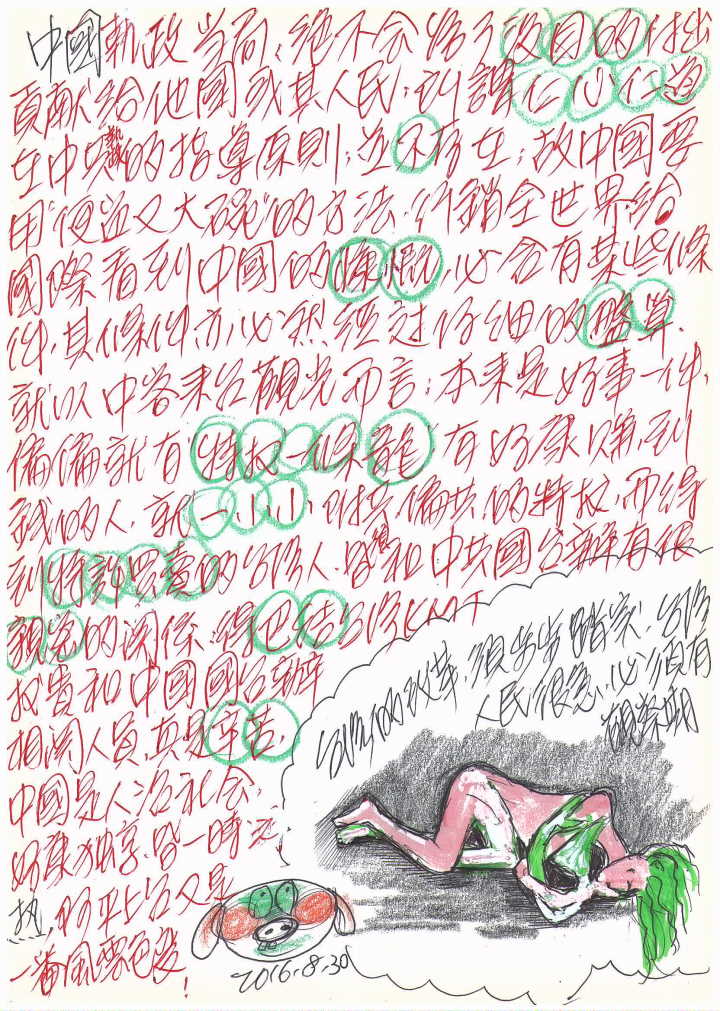 中國執政当局,絕不会為了没目的付出
貢献給他國或其人民;到講仁心仁道
在中共執政的指導原則;並不存在;故中國要
用"便道又大碗"的方法,行銷全世界,給
國際看到中國的慷慨,必含有某些條
件,其條件亦必然經过仔细的盤算.
就以中客來台觀光而言;本来是好事一件,
偏偏就有"特权一條龍"有好康賺到
錢的人,就一小小附共偏共的特权,而得
到特許買賣的台湾人,皆須和中共國台辦有很
親密的関係;得巴结台湾KMT
权貴和中國國台辦
相関人員,真是辛苦,
中國是人治社会,
好康独享,皆一時之
热,阿平上台又是
一番風雲色变!
台湾的改革,須步步踏实,台湾
人民很急,必須有
觀察期
2016.8.30